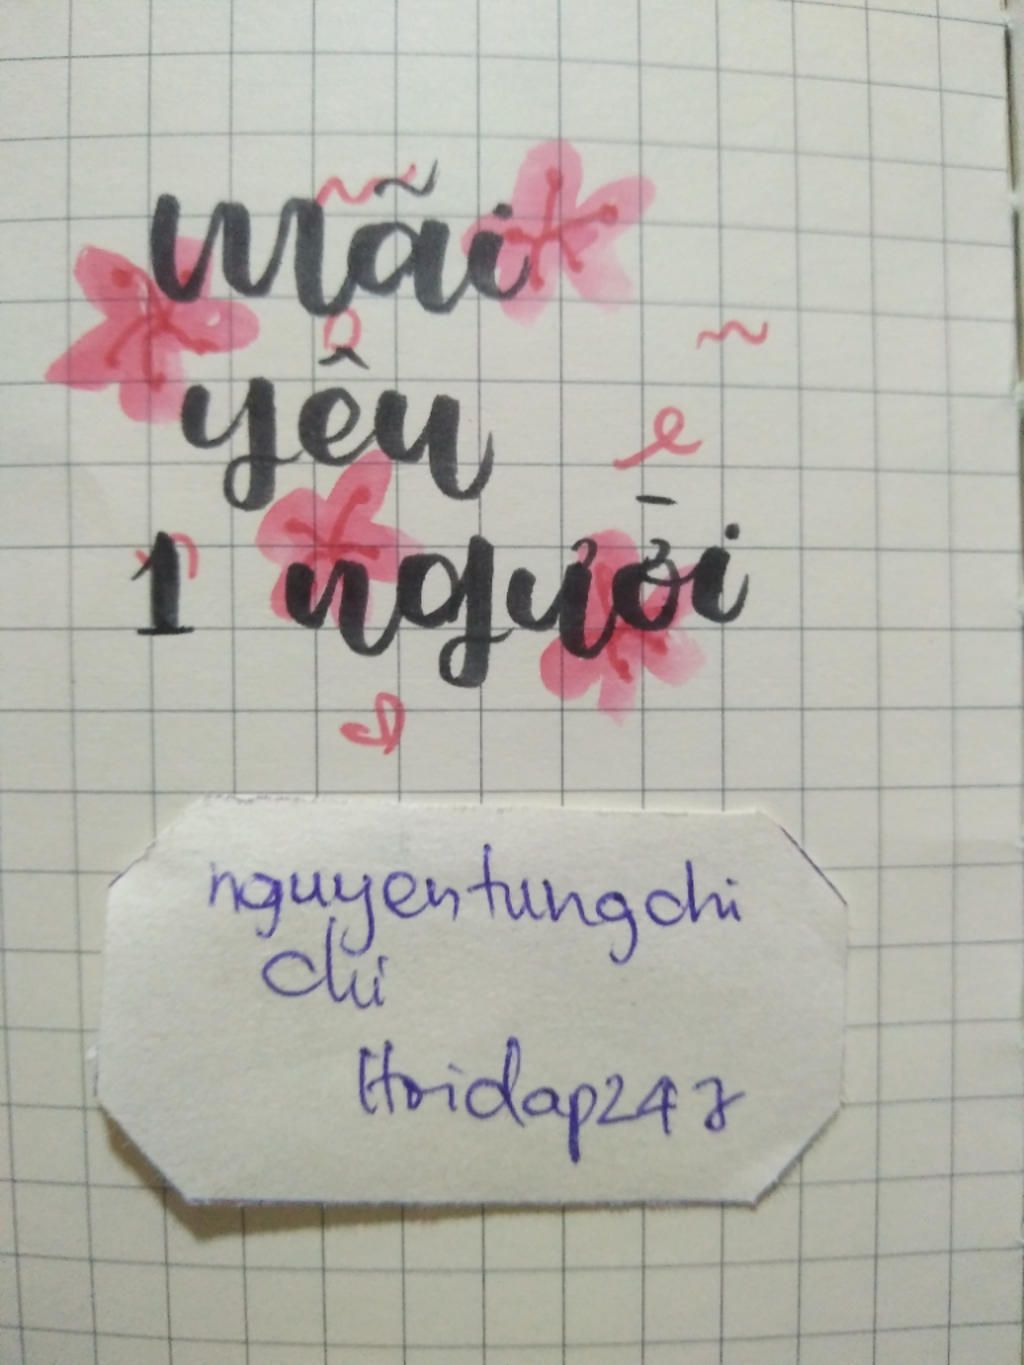 mãi
yêu
1 người
nguyentungchi
chi
Hoidap247